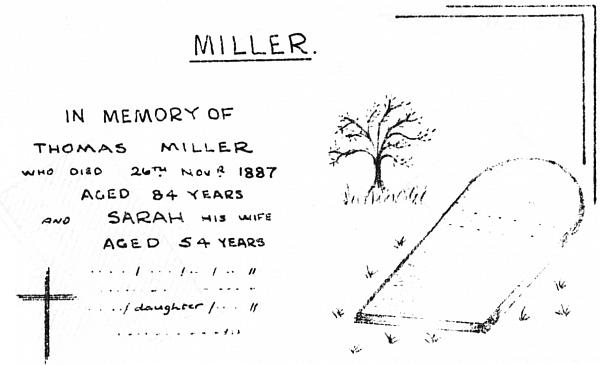 MILLER.
IN MEMORY OF
THOMAS MILLER
WHO DIED 26TH NOVR 1887
AGED 84 YEARS
AND SARAH HIS WIFE
AGED 54 YEARS
.... / .... / .. / .. "
.... / daughter / ... "